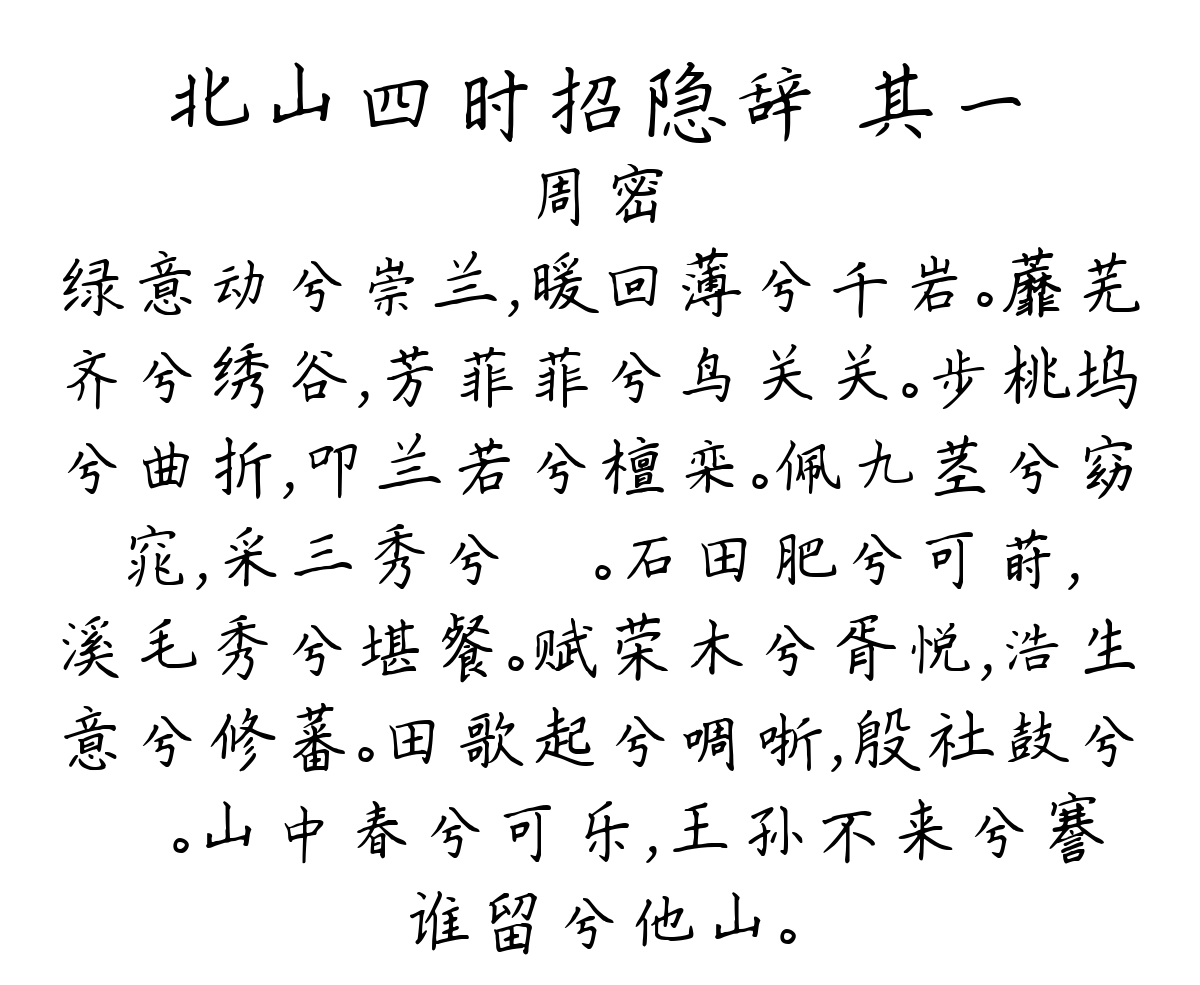 北山四时招隐辞 其一
周密
绿意动兮崇兰,暖回薄兮千岩。蘼芜
齐兮绣谷,芳菲菲兮鸟关关。步桃坞
兮曲折,叩兰若兮檀栾。佩九茎兮窈
窕,采三秀兮 。石田肥兮可莳,
溪毛秀兮堪餐。赋荣木兮胥悦,浩生
意兮修蕃。田歌起兮啁哳,殷社鼓兮
。山中春兮可乐,王孙不来兮謇
谁留兮他山。